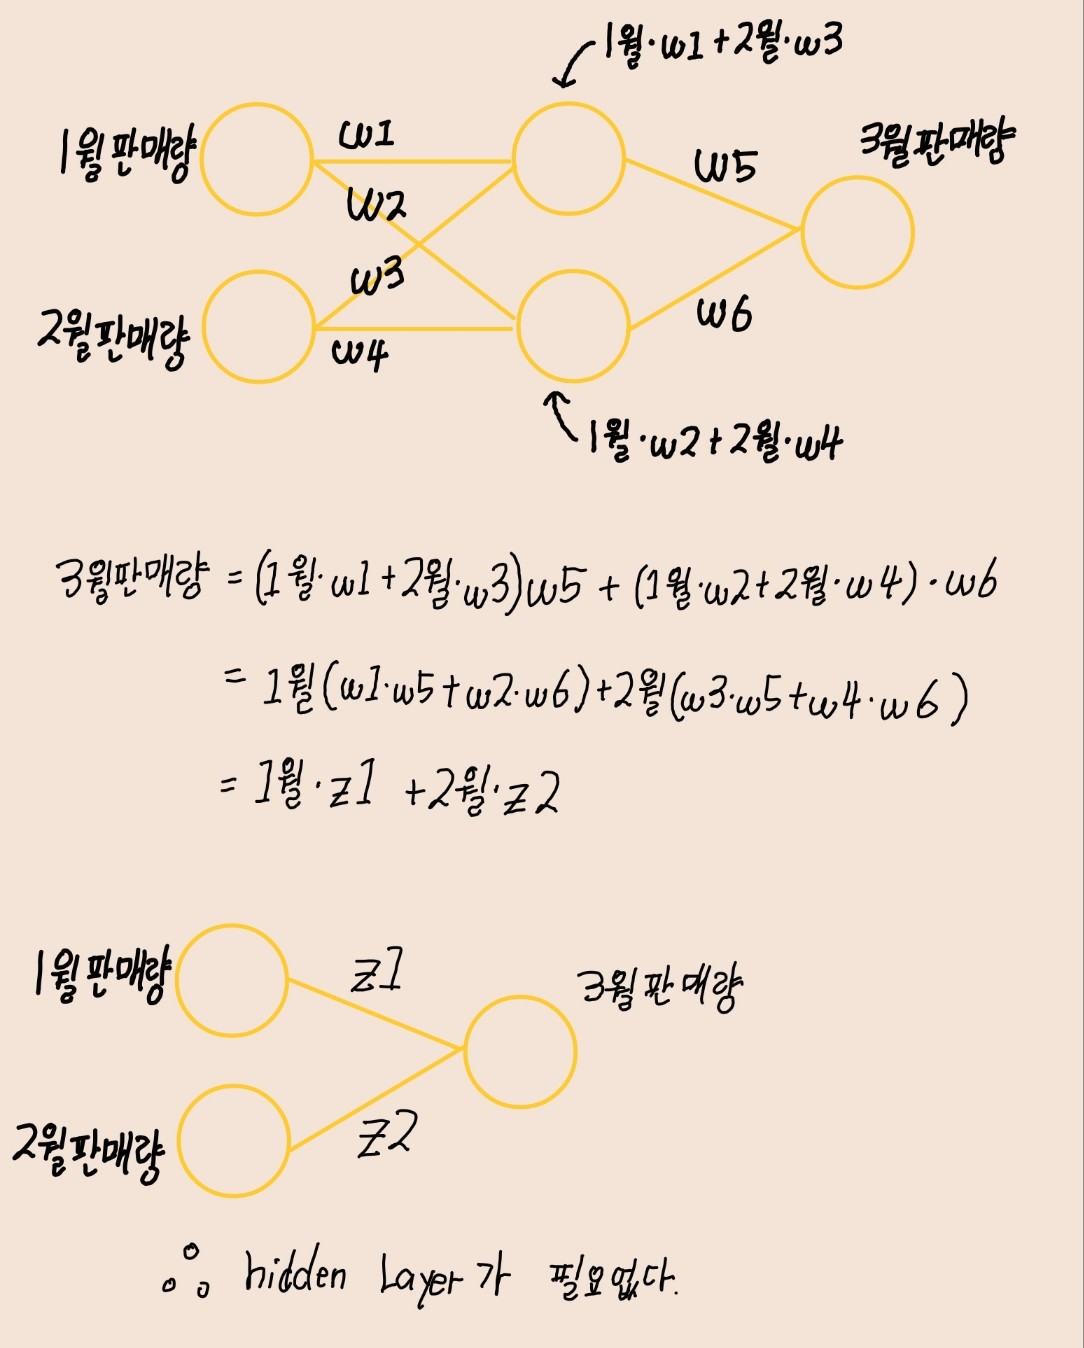 1월·w1+2월·w3
1월판매량
w1
w2
w3
w4
2월판매량
w5
w6
3월판매량
1월·w2+2월·w4
3월판매량 = (1월·w1+2월·w3)w5 + (1월·w2+2월·w4)·w6
= 1월(w1·w5+w2·w6)+2월(w3·w5+w4·w6)
= 1월·z1 +2월·z2
1월판매량
z1
3월판매량
2월판매량
z2
∴ hidden Layer가 필요없다.